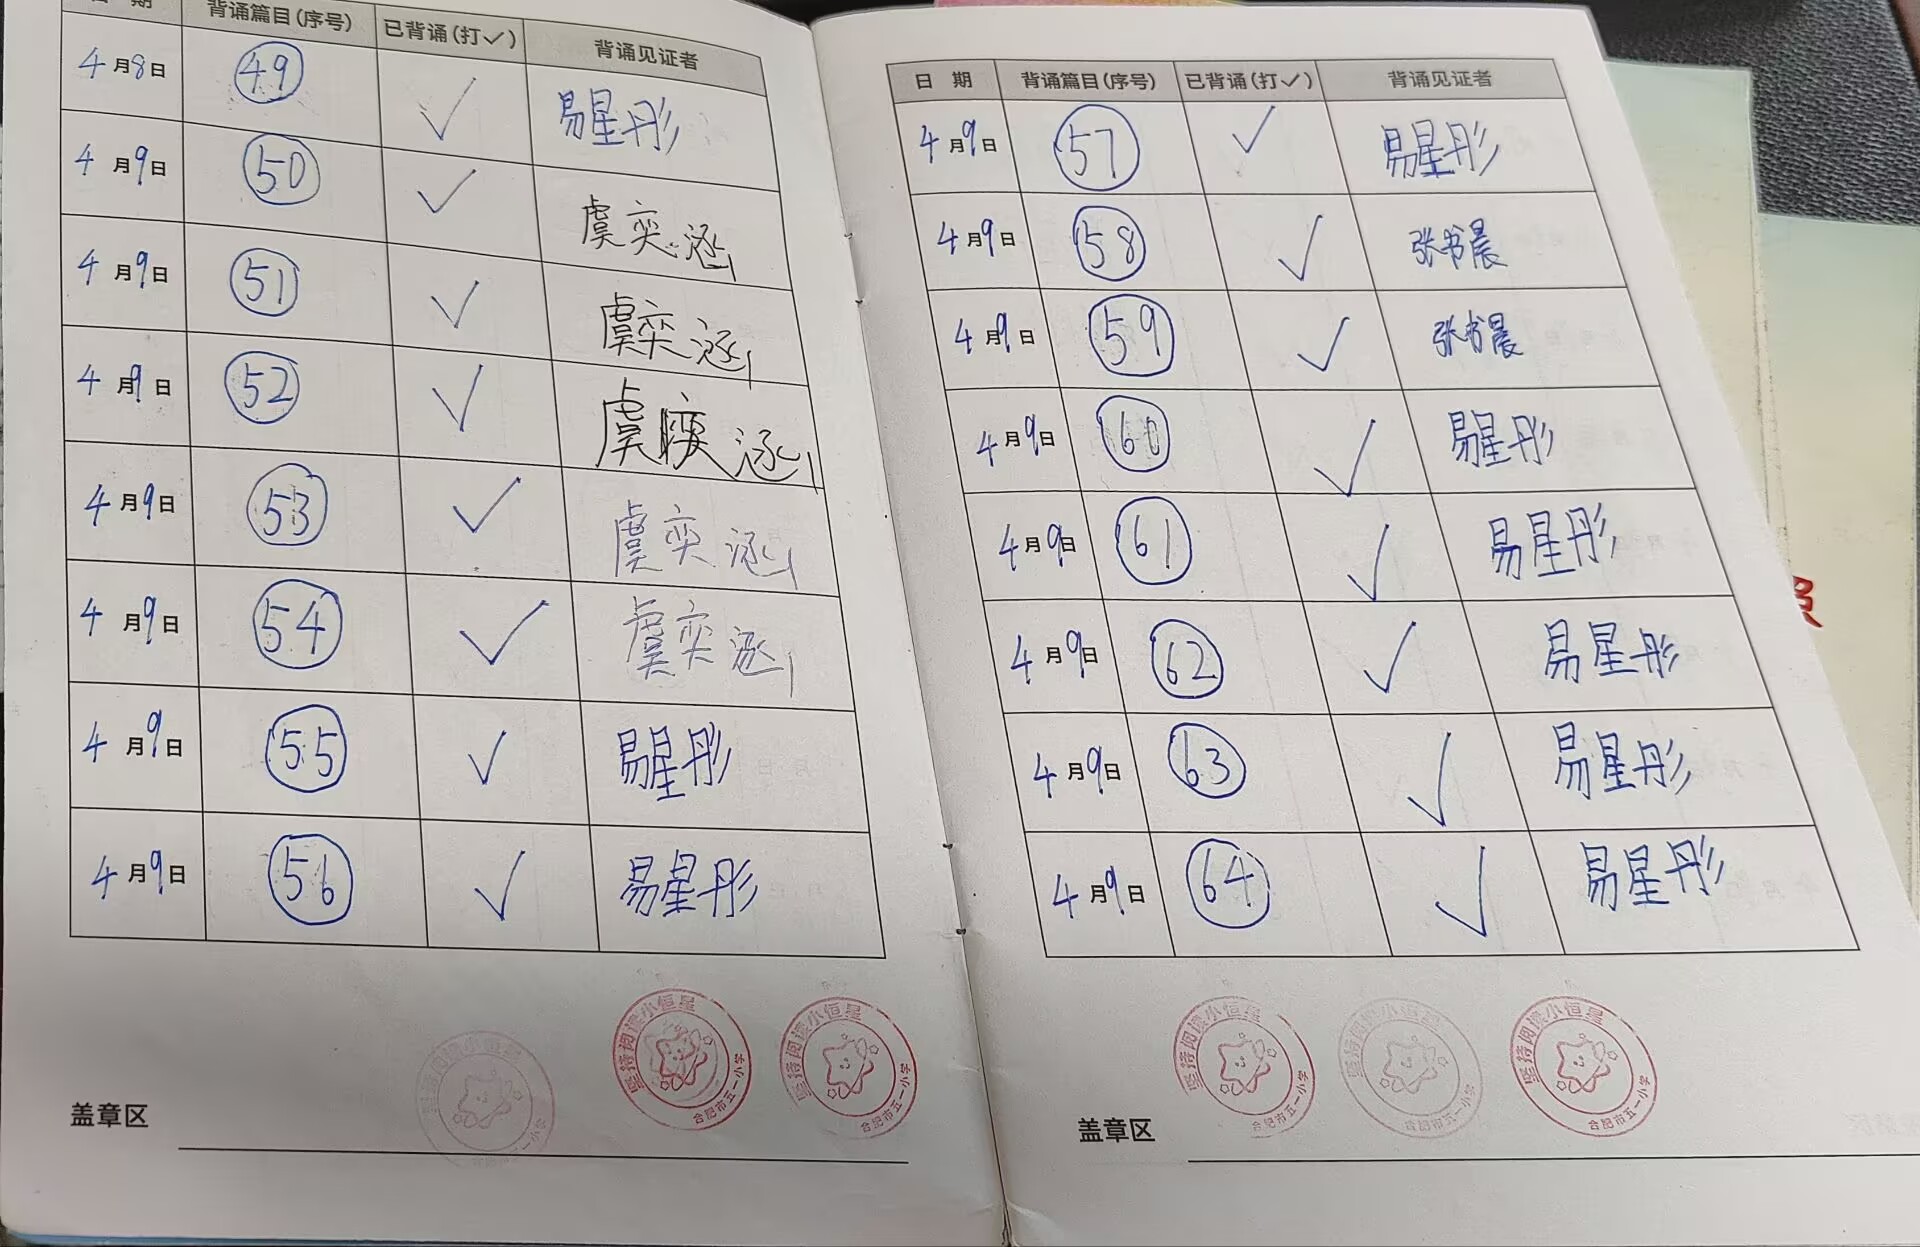 日 期 背诵篇目(序号) 已背诵(打✓) 背诵见证者
4月8日 49 ✓ 易星彤
4月9日 50 ✓ 虞奕涵
4月9日 51 ✓ 虞奕涵
4月9日 52 ✓ 虞奕涵
4月9日 53 ✓ 虞奕涵
4月9日 54 ✓ 虞奕涵
4月9日 55 ✓ 易星彤
4月9日 56 ✓ 易星彤
坚持阅读小恒星
合肥市五一小学
坚持阅读小恒星
合肥市五一小学
坚持阅读小恒星
合肥市五一小学
盖章区
日 期 背诵篇目(序号) 已背诵(打✓) 背诵见证者
4月9日 57 ✓ 易星彤
4月9日 58 ✓ 张书晨
4月9日 59 ✓ 张书晨
4月9日 60 ✓ 易星彤
4月9日 61 ✓ 易星彤
4月9日 62 ✓ 易星彤
4月9日 63 ✓ 易星彤
4月9日 64 ✓ 易星彤
坚持阅读小恒星
合肥市五一小学
坚持阅读小恒星
合肥市五一小学
坚持阅读小恒星
合肥市五一小学
盖章区